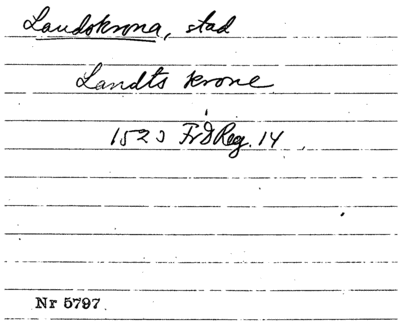 Landskrona, stad
Landts krone
1523 Fr I Reg. 14
Nr 5797